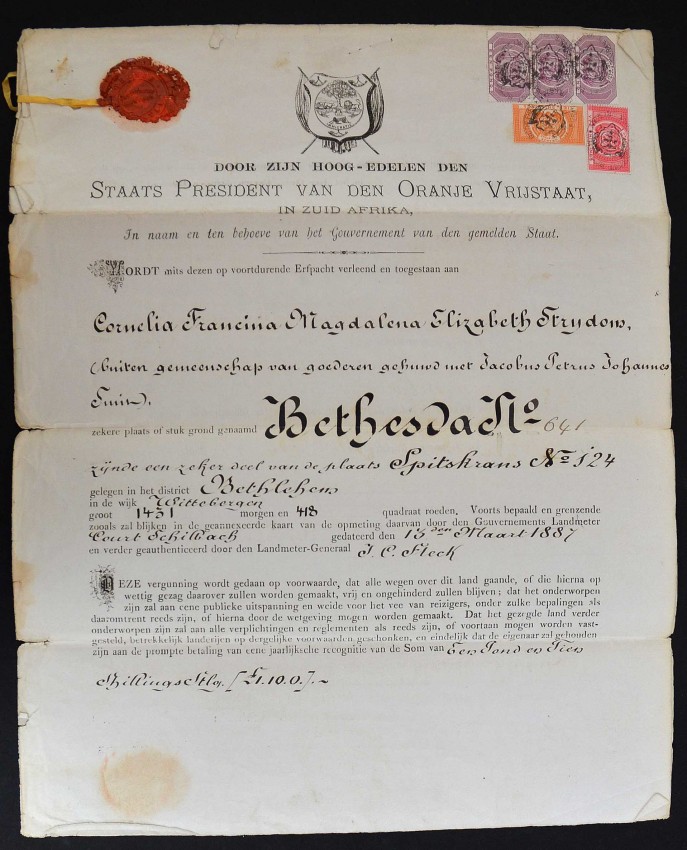 DOOR ZIJN HOOG-EDELEN DEN
STAATS PRESIDENT VAN DEN ORANJE VRIJSTAAT,
IN ZUID AFRIKA,
In naam en ten behoeve van het Gouvernement van den gemelden Staat.
WORDT mits dezen op voortdurende Erfpacht verleend en toegestaan aan
Cornelia Francina Magdalena Elizabeth Strydom,
(buiten gemeenschap van goederen gehuwd met Jacobus Petrus Johannes
zekere plaats of stuk grond genaamd Bethesda No 641
zijnde een zeker deel van de plaats Spitskrans No 124
gelegen in het district Bethlehem
in de wijk Wittebergen
groot 1431 morgen en 418 quadraat roeden. Voorts bepaald en grenzende
zooals zal blijken in de geannexeerde kaart van de opmeting daarvan door den Gouvernements Landmeter
Court Schilbach gedateerd den 15den Maart 1887
en verder geauthenticeerd door den Landmeter-Generaal J. C. Fleck
DEZE vergunning wordt gedaan op voorwaarde, dat alle wegen over dit land gaande, of die hierop op
wettig gezag daarover zullen worden gemaakt, vrij en ongehinderd zullen blijven; dat het onderworpen
zijn zal aan eene publieke uitspanning en weide voor het vee van reizigers, onder zulke bepalingen als
daaromtrent reeds zijn, of hierna door de wetgeving mogen worden gemaakt. Dat het gezegde land verder
onderworpen zijn zal aan alle verplichtingen en reglementen als reeds zijn, of voortaan mogen worden vast-
gesteld, betrekkelijk landerijen op dergelijke voorwaarden geschonken, en eindelijk dat de eigenaar zal gehouden
zijn aan de prompte betaling van eene jaarlijksche recognitie van de Som van Een Pond en Tien
Shillings Stlg. [£1.10.0.]